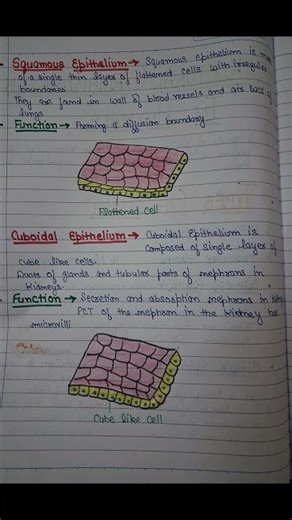 Squamous Epithelium → Squamous epithelium is made
of a single thin layer of flattened cells with irregular
boundaries
They are found in wall of blood vessels and air sacs of
lungs
Function → Forming is diffusion boundary
Flattened Cell
Cuboidal Epithelium → Cuboidal Epithelium is
composed of single layer of
cube like cells.
Ducts of glands and tubular parts of nephrons in
kidneys
Function → Secretion and absorption nephrons in
PCT of the nephron in the kidney has
microvilli
Cube like Cell